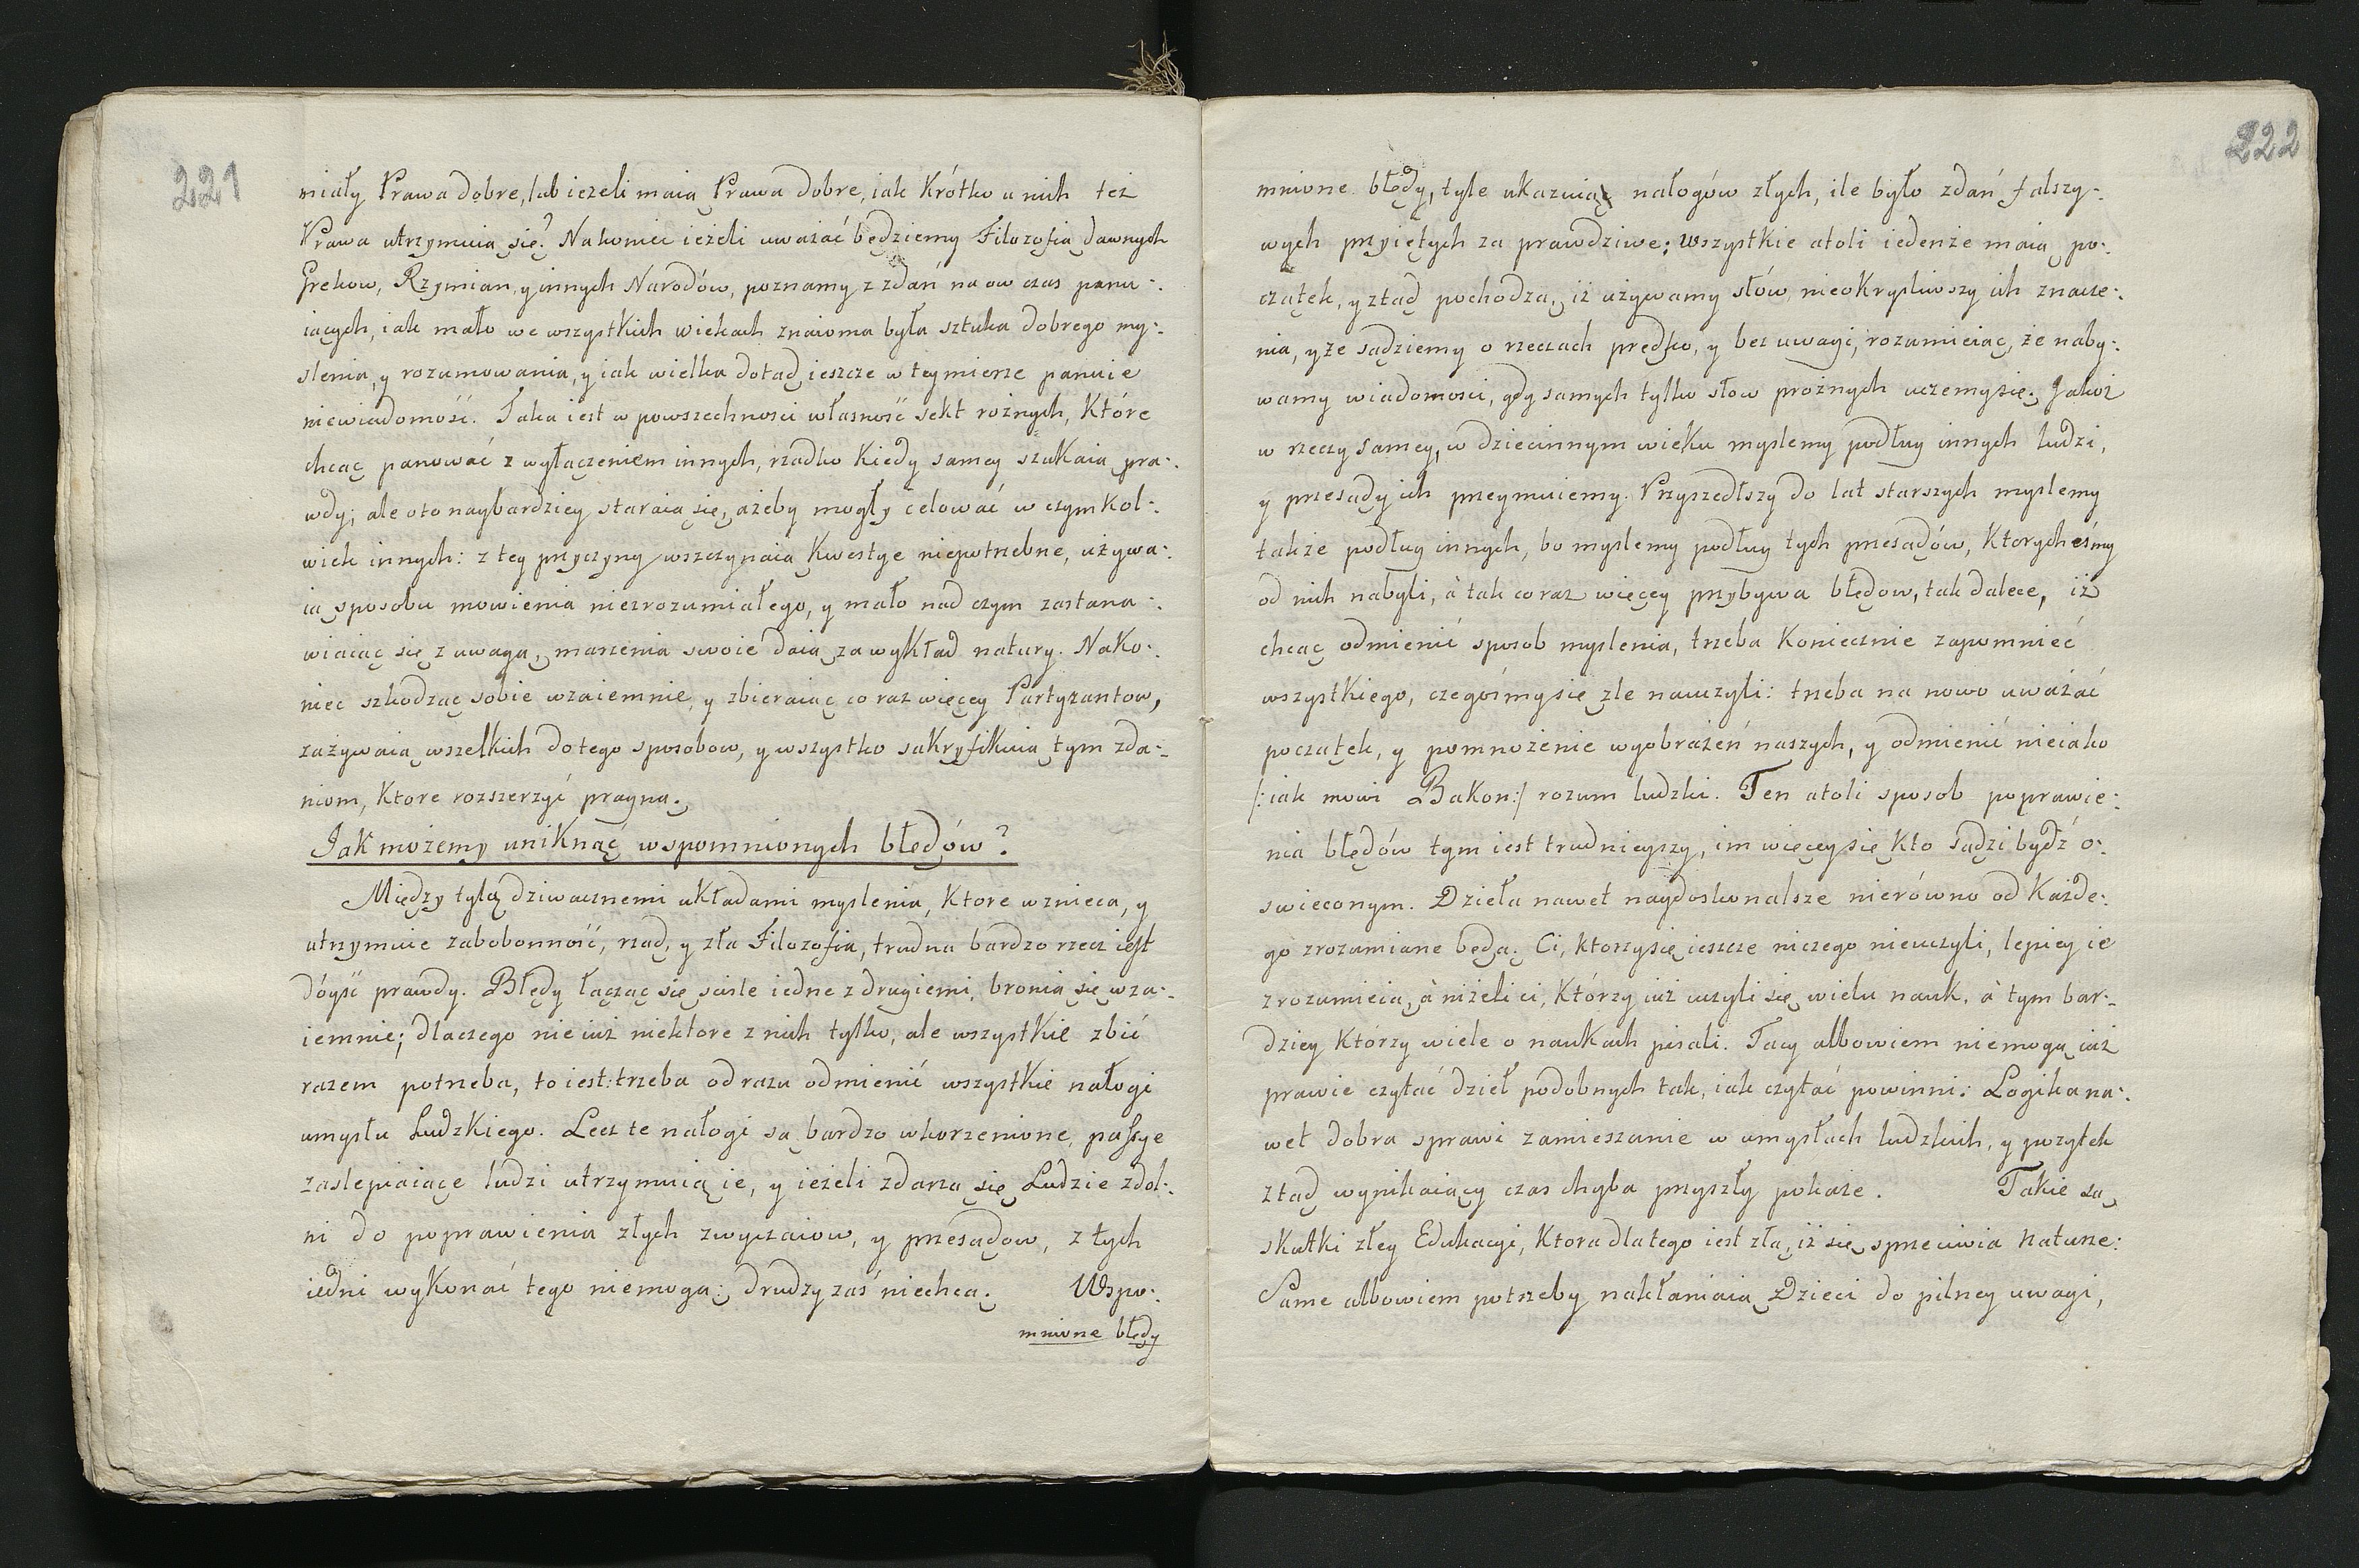 221
miały Prawa dobre, lub ieżeli maią Prawa dobre, iak krótko u nich też
Prawa utrzymuią się? Nakoniec ieżeli uważać będziemy Filozofią dawnych
Grekow, Rzymian, y innych Narodów, poznamy z zdań na ow czas panu-:
iących, iak mało we wszystkich wiekach znaioma była sztuka dobrego my-:
slenia, y rozumowania, y iak wielka dotąd ieszcze w tey mierze panuie
niewiadomość. Taka iest w powszechnosci własność sekt rożnych, Które
chcąc panować z wyłączeniem innych, rzadko Kiedy samey szukaią pra-:
wdy; ale oto naybardziey staraią się, ażeby mogły celować w czymkol-:
wiek innych: z tey przyczyny wszczynaią Kwestye niepotrzebne, używa-:
ią sposobu mowienia niezrozumiałego, y mało nad czym zastana-:
wiaiąc się z uwagą, marzenia swoie daią za wykład natury. Nako-:
niec szkodząc sobie wzaiemnie, y zbieraiąc co raz więcey Partyzantow,
zażywaią wszelkich do tego sposobow, y wszystko sakryfikuią tym zda-:
niom, Ktore rozszerzyć pragną.
Jak możemy uniknąć wspomnionych błędów?
Między tylą dziwacznemi układami myslenia, Ktore wznieca, y
utrzymuie zabobonność, rząd, y zła Filozofia, trudna bardzo rzecz iest
dóyść prawdy. Błędy łącząc się sciste iedne z drugiemi, bronią się wza-:
iemnie; dlaczego nie iuż niektore z nich tylko, ale wszystkie zbić
razem potrzeba, to iest: trzeba od razu odmienić wszystkie nałogi
umysłu Ludzkiego. Lecz te nałogi są bardzo wkorzenione, passye
zaslepiaiące ludzi utrzymuią ie, y ieżeli zdarzą się Ludzie zdol-:
ni do poprawienia złych zwyczaiow, y przesądow, z tych
iedni wykonać tego niemogą; drudzy zaś niechcą. Wspo-:
mnione błędy
222
mnione błędy, tyle ukazuią nałogów złych, ile było zdań falszy-:
wych przyiętych za prawdziwe; wszystkie atoli iedenże maią po-:
czątek, y ztąd pochodzą, iż używamy słów nieokrysliwszy ich znacze-:
nia, y że sądziemy o rzeczach prędko, y bez uwagi, rozumieiąc, że naby-:
wamy wiadomosci, gdy samych tylko słow prożnych uczemy się. Jakoż
w rzeczy samey, w dziecinnym wieku myslemy podług innych ludzi,
y przesądy ich przeymuiemy. Przyszedłszy do lat starszych myslemy
także podług innych, bo myslemy podług tych przesądów, Ktorycheśmy
od nich nabyli, à tak co raz więcey przybywa błędow, tak dalece, iż
chcąc odmienić sposob myslenia, trzeba Koniecznie zapomnieć
wszystkiego, czegośmy się zle nauczyli: trzeba na nowo uważać
początek, y pomnożenie wyobrażeń naszych, y odmienić nieiako
/: iak mowi Bakon :/ rozum ludzki. Ten atoli sposob poprawie-:
nia błędów tym iest trudnieyszy, im więcey się kto sądzi bydź o-:
swieconym. Dzieła nawet naydoskonalsze nierówno od Każde-:
go zrozumiane będą. Ci, ktorzy się ieszcze niczego nieuczyli, lepiey ie
zrozumieią, à niżeli ci, Którzy iuż uczyli się wielu nauk, à tym bar-:
dziey Którzy wiele o naukach pisali. Tacy albowiem niemogą iuż
prawie czytać dzieł podobnych tak, iak czytać powinni: Logika na-:
wet dobra sprawi zamieszanie w umysłach ludzkich, y pożytek
ztąd wynikaiący czas chyba przyszły pokaże. Takie są
skutki złey Edukacyi, Ktora dlatego iest zła, iż się sprzeciwia naturze:
Same albowiem potrzeby nakłaniaią Dzieci do pilney uwagi,